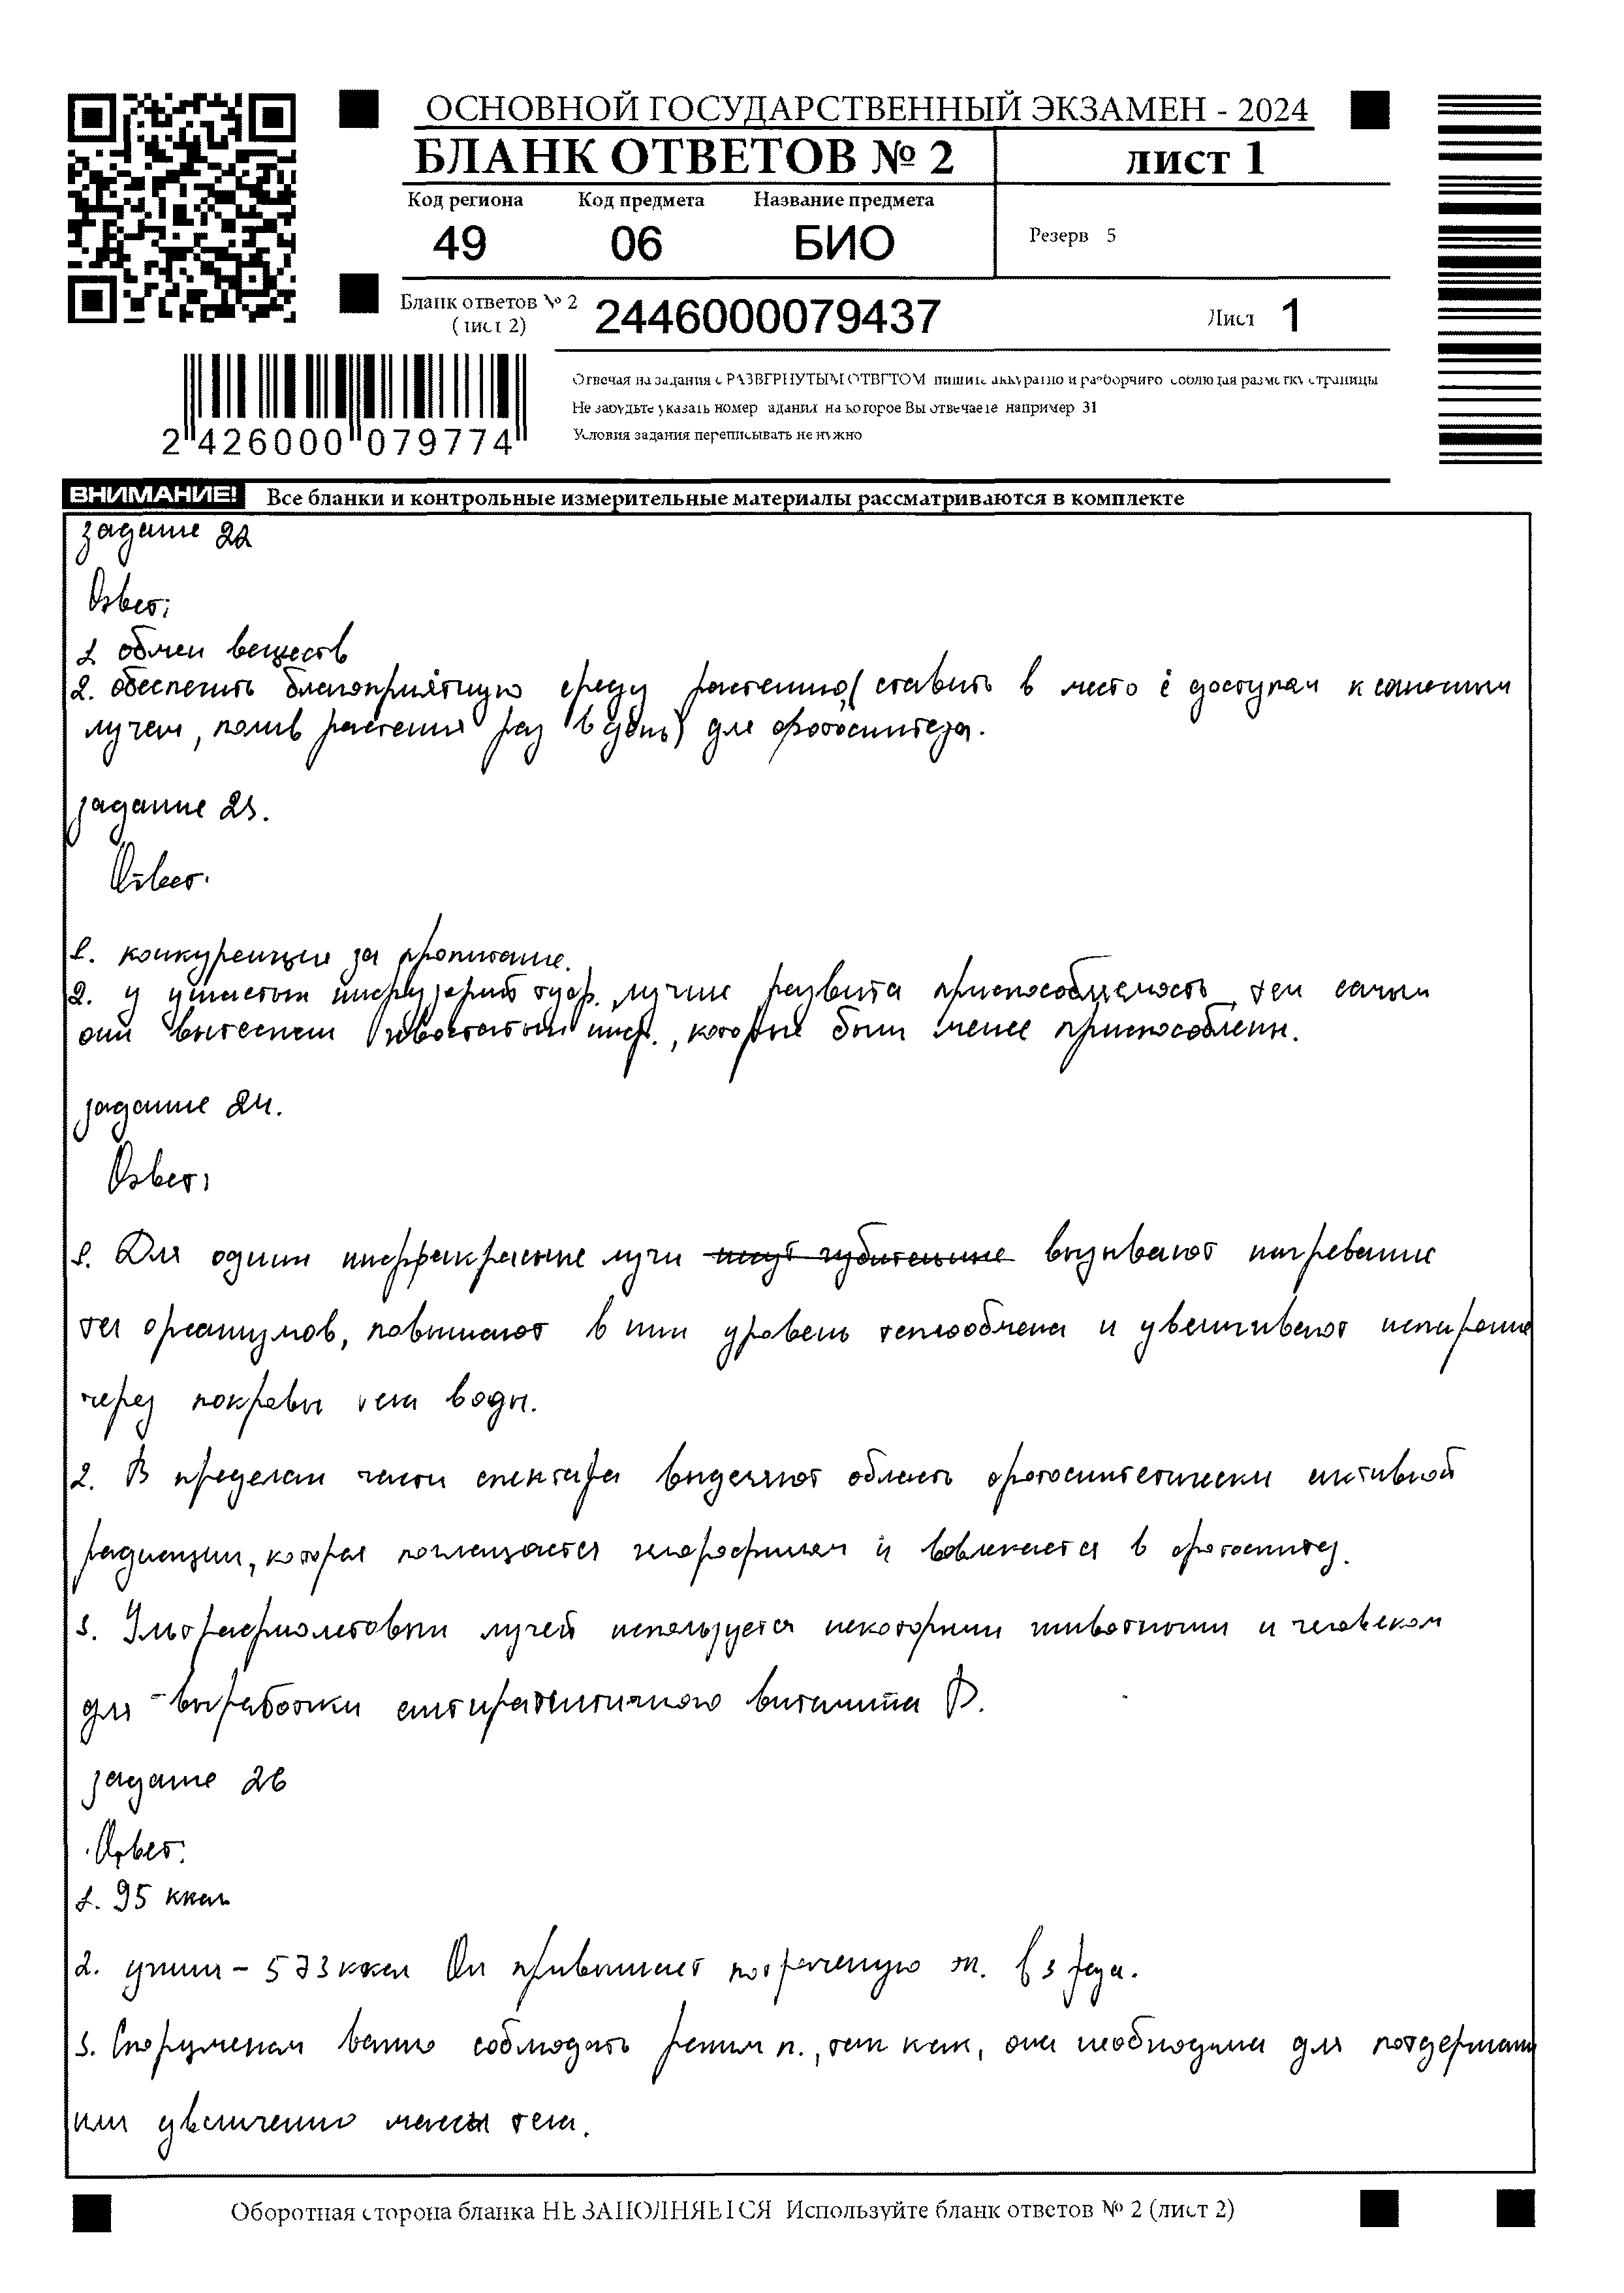 ОСНОВНОЙ ГОСУДАРСТВЕННЫЙ ЭКЗАМЕН - 2024
БЛАНК ОТВЕТОВ № 2
лист 1
Код региона Код предмета Название предмета
49 06 БИО
Резерв 5
Бланк ответов № 2 (лист 2) 2446000079437
Лист 1
2 426000 079774
Отвечая на задания с РАЗВЕРНУТЫМ ОТВЕТОМ пишите аккуратно и разборчиво соблюдая разметку страницы
Не забудьте указать номер задания на которое Вы отвечаете например 31
Условия задания переписывать не нужно
ВНИМАНИЕ! Все бланки и контрольные измерительные материалы рассматриваются в комплекте
задание 22
Ответ:
1 обмен веществ
2. обеспечить благоприятную среду растению( ставить в место с доступам к солнечным
лучем, полив растения раз в день) для фотосинтеза.
задание 23.
Ответ.
1. конкуренция за пропитание.
2. у ушастых инфузорий туф. лучше развита приспособляемость тем самым
они вытеснят хвостатых инф., которые были менее приспособлены.
задание 24.
Ответ:
1. Для одним инфракрасные лучи вызывают нагревание
тел организмов, повышают в них уровень теплообмена и увеличивают испарение
через покровы тела воды.
2. В пределах части спектра выделяют область фотосинтетически активной
радиации, которая поглощается хлорофилам и вовлекается в фотосинтез.
3. Ультрафиолетовых лучей используется некоторыми животными и человеком
для выработки антирахитичного витамина D.
задание 26
Ответ.
1. 95 ккал
2. ужин - 573 ккал Он привышает потраченую эн. в 3 раза.
3. Спортсменам важно соблюдать режим п., так как, она необходима для потдержани
или увеличению массы тела.
Оборотная сторона бланка НЕ ЗАПОЛНЯЕТСЯ Используйте бланк ответов № 2 (лист 2)